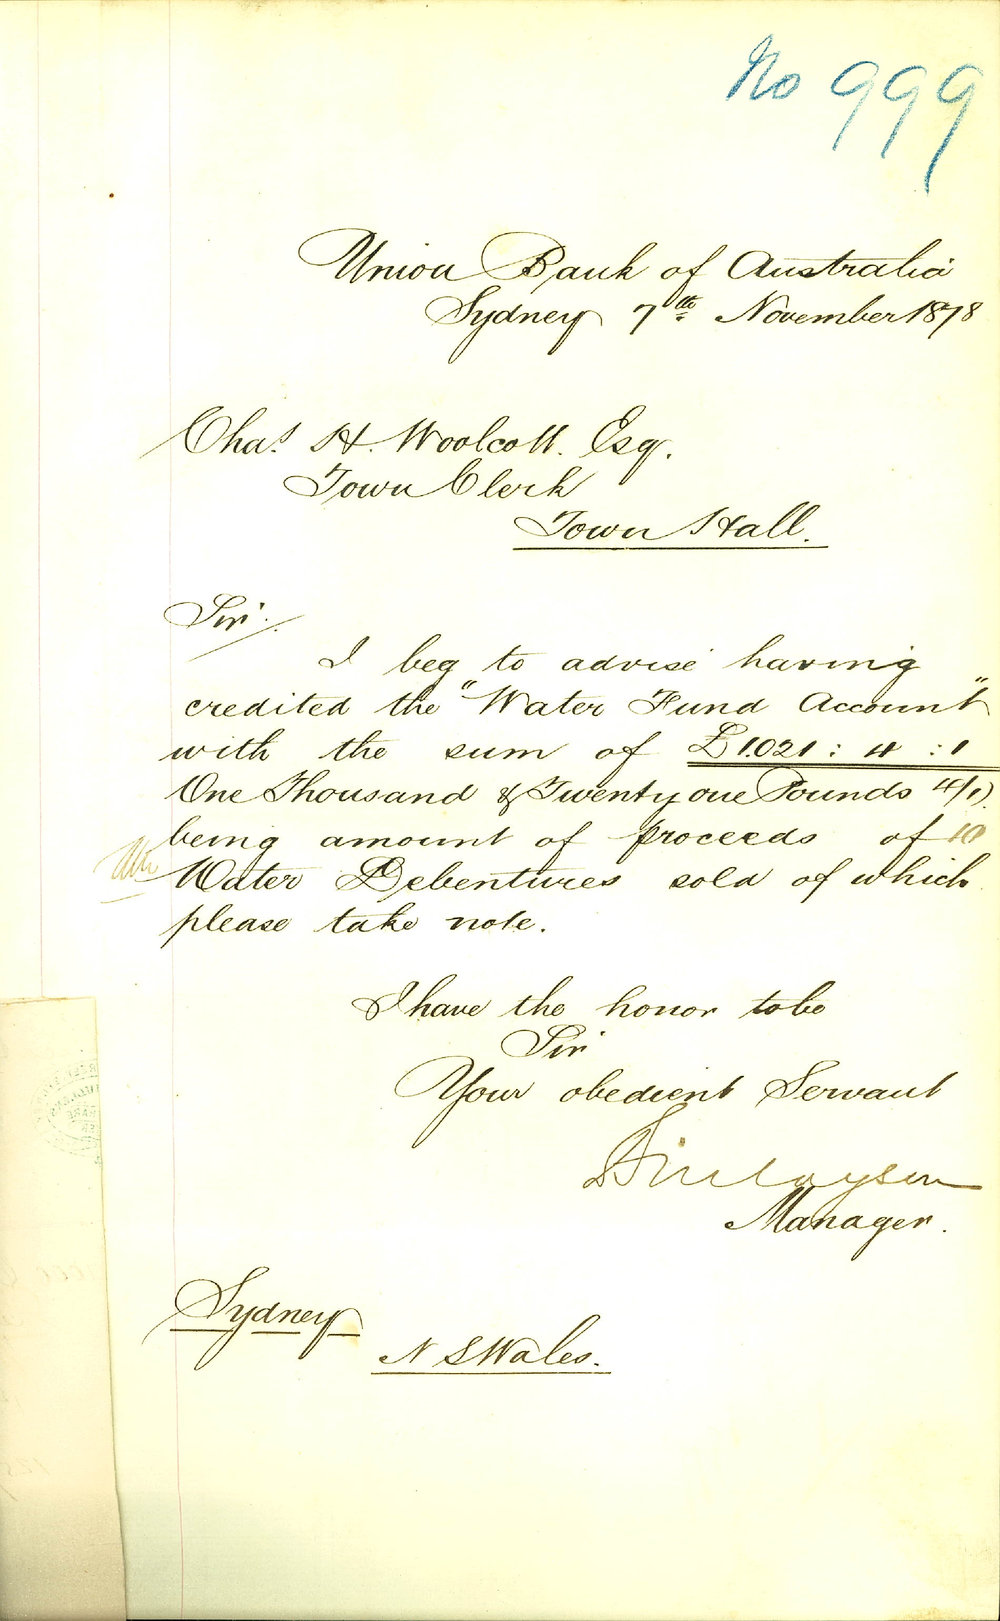 No 999
Union Bank of Australia
Sydney 7th November 1878
Chas H. Woolcott. Esq.
Town Clerk
Town Hall.
Sir.
I beg to advise having
credited the "Water Fund Account"
with the sum of £1.021 : 4 : 1
One Thousand & Twenty one Pounds 4/1)
being amount of proceeds of 10
Water Debentures sold of which
please take note.
I have the honor to be
Sir
Your obedient Servant
Finlayson
Manager.
Sydney
N S Wales.